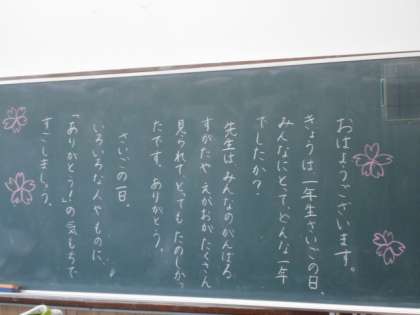 おはようございます。
きょうは一年生さいごの日。
みんなにとって、どんな一年
でしたか？
先生は みんなのがんばる
すがたや えがおが たくさん
見られて とても たのしかっ
たです。ありがとう。
さいごの一日。
いろいろな人やものに、
「ありがとう！」の気もちで
すごしましょう。